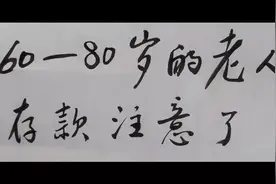 60—80岁的老人
存款注意了